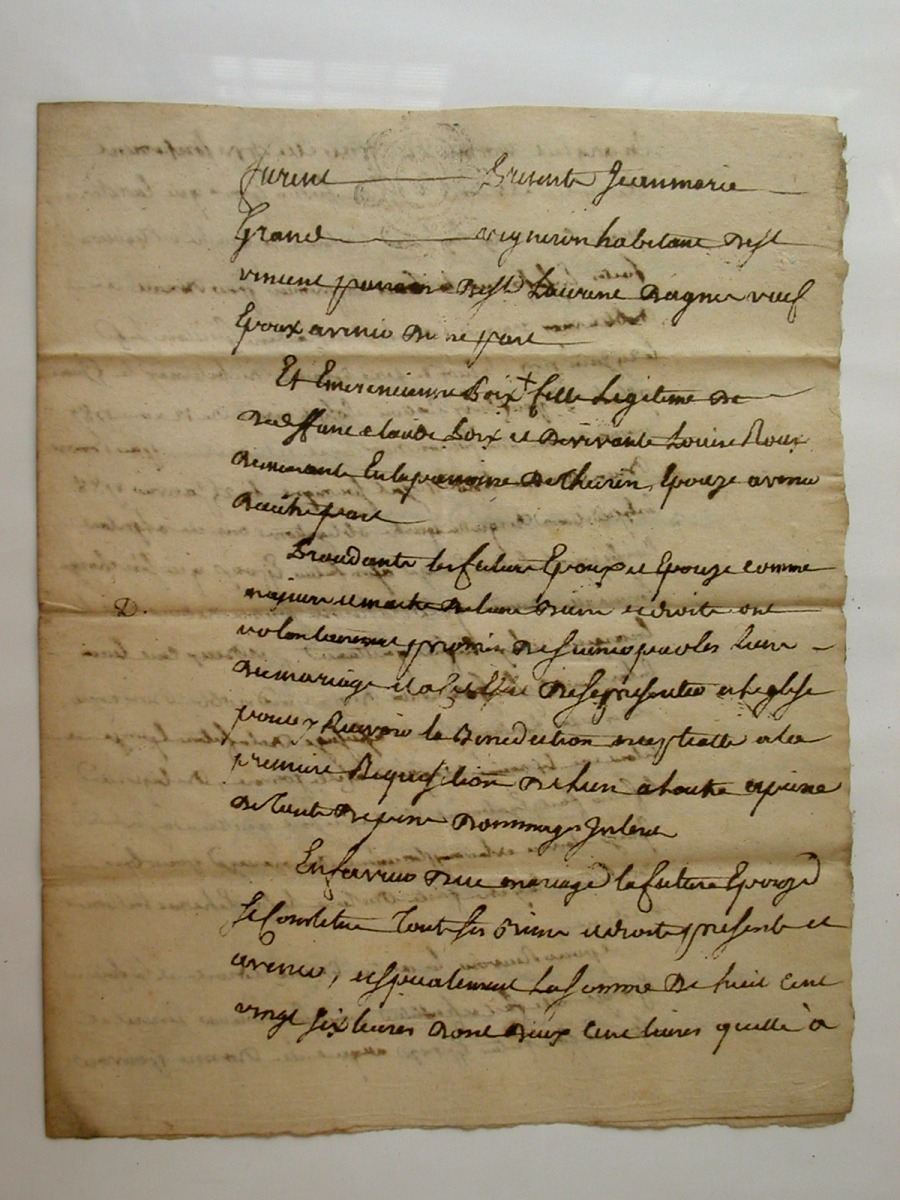 furent presents Jeanmarie
Grand vigneron habitant de st
vincent parroisse de st Laurent dagny veuf
Epoux avenir dune part
Et Emerencienne Boix fille Legitime de
deffunt claude boix et de vivante Louise Roux
demeurant En la parroisse de Thurin, Epouze avenir
dautre part
Lesquels futurs Epoux et Epouze comme
majeurs et maitre de leurs biens et droits ont
volontairement promis de se unir par les liens
de mariage et a cet effet de se presenter a Leglise
pour y Recevoir la Benediction nuptialle a la
premiere Requisition de Lun a Lautre a peine
de touts depens dommages Interets
En faveur dud mariage la future Epouze
se Constitue Touts ses biens et droits presents et
avenir, et specialement La somme de huit Cent
vingt six livres dont deux Cent livres quelle à